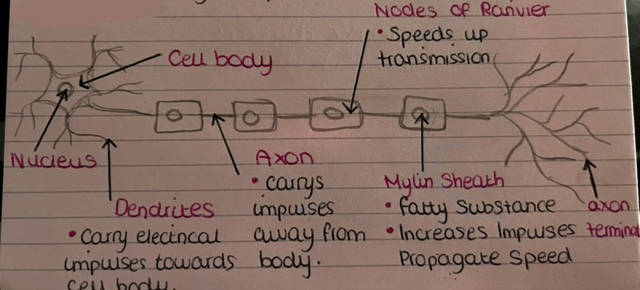 Nodes of Ranvier
• Speeds up
transmission
Cell body
Nucleus
Dendrites
• Carry electrical
impulses towards
cell body.
Axon
• carrys
impulses
away from
body.
Mylin Sheath
• Fatty Substance
• Increases Impulses
Propagate Speed
axon
terminal